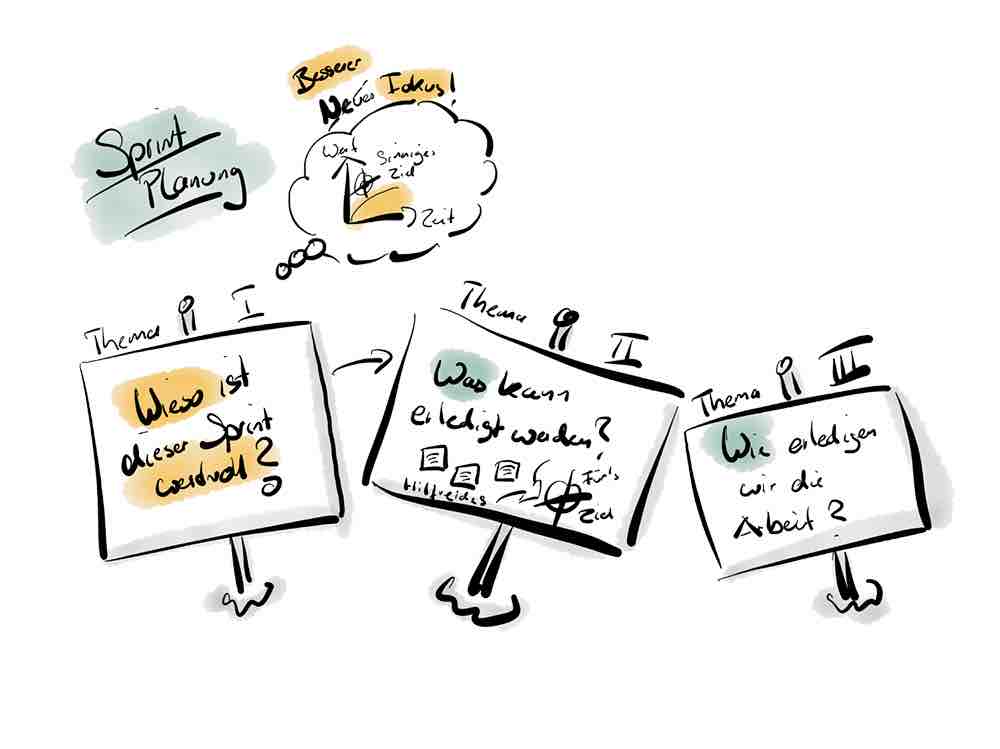 Sprint
Planung
Besserer
Neuer Fokus!
Wert
Sinniges
Ziel
Zeit
Thema I
Wieso ist
dieser Sprint
wertvoll?
Thema II
Was kann
erledigt werden?
Hilfreiches
Für's
Ziel
Thema III
Wie erledigen
wir die
Arbeit?